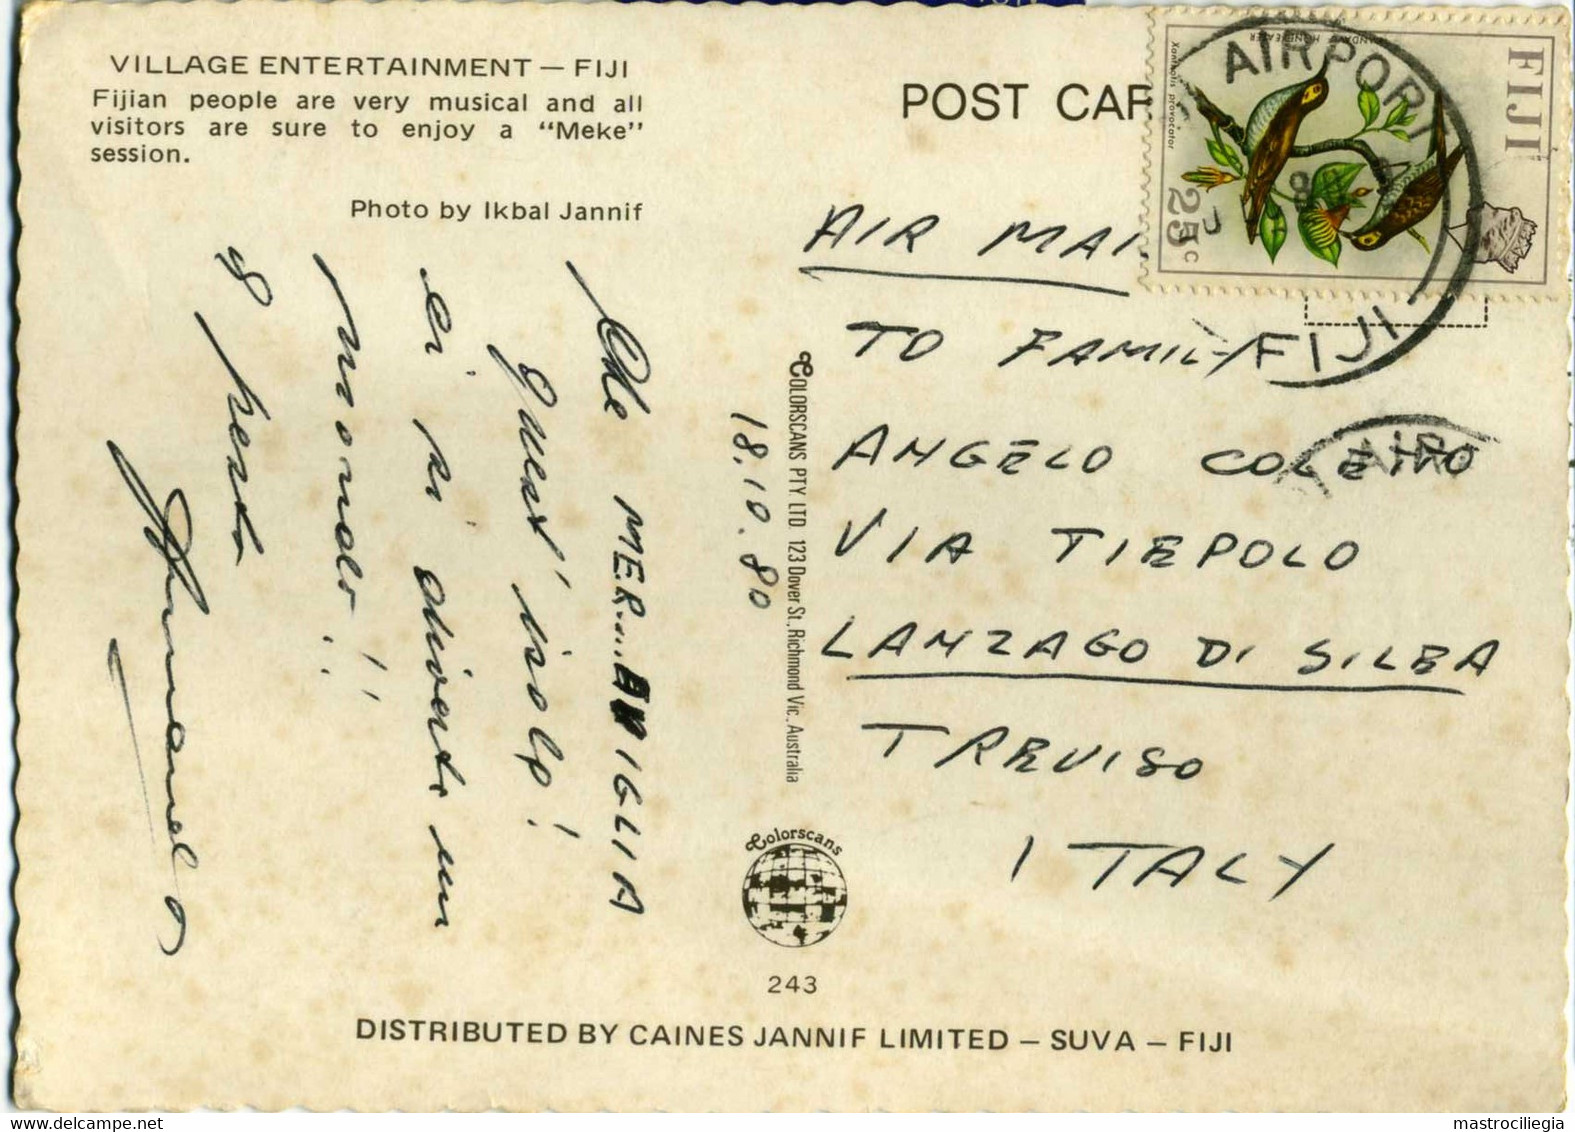 VILLAGE ENTERTAINMENT — FIJI
Fijian people are very musical and all
visitors are sure to enjoy a “Meke”
session.
Photo by Ikbal Jannif
POST CAR
FIJI
25c
Xanthotis provocator
HONEYEATER
AIRPORT
FIJI
AIR
AIR MAI
TO FAMILY
ANGELO
VIA TIEPOLO
LANZAGO DI SILEA
TREVISO
ITALY
18.10.80
Che MER...AVIGLIA
quest' isola!
ci si diverte un
mondo!!
A presto
COLORSCANS PTY LTD 123 Dover St., Richmond Vic. Australia
Colorscans
243
DISTRIBUTED BY CAINES JANNIF LIMITED — SUVA — FIJI
mastrociliegia